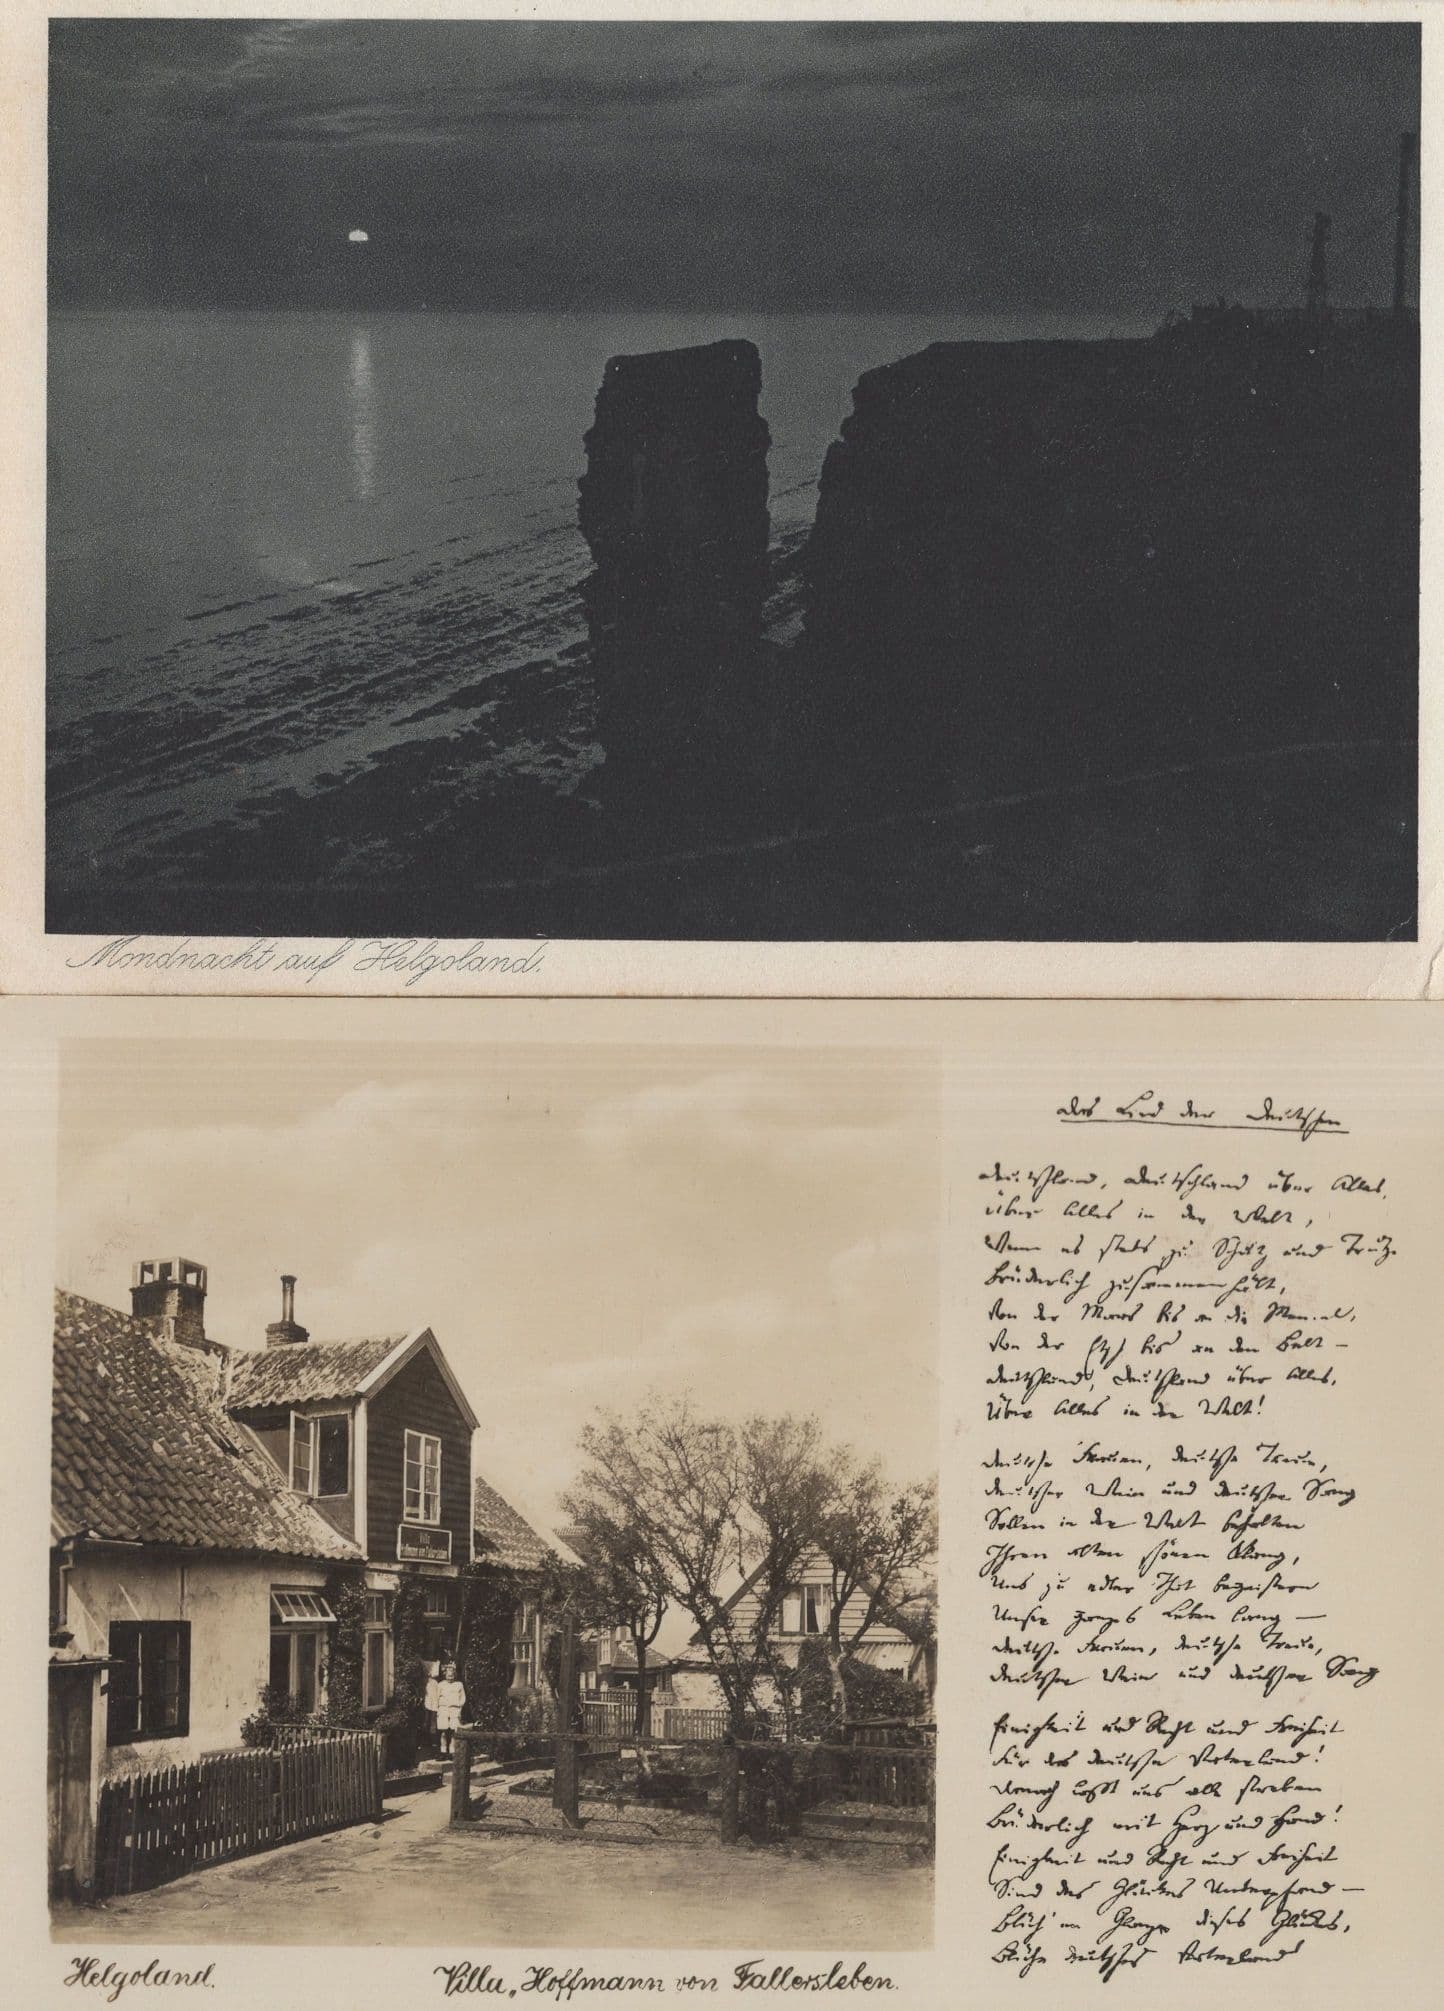 Mondnacht auf Helgoland.
Villa
Hoffmann von Fallersleben
Helgoland.
Villa „Hoffmann von Fallersleben.
Das Lied der Deutschen
Deutschland, Deutschland über Alles,
Über Alles in der Welt,
Wenn es stets zu Schutz und Trutze
Brüderlich zusammenhält,
Von der Maas bis an die Memel,
Von der Etsch bis an den Belt –
Deutschland, Deutschland über Alles,
Über Alles in der Welt!
Deutsche Frauen, deutsche Treue,
Deutscher Wein und deutscher Sang
Sollen in der Welt behalten
Ihren alten schönen Klang,
Uns zu edler That begeistern
Unser ganzes Leben lang –
Deutsche Frauen, deutsche Treue,
Deutscher Wein und deutscher Sang
Einigkeit und Recht und Freiheit
Für das deutsche Vaterland!
Danach laßt uns alle streben
Brüderlich mit Herz und Hand!
Einigkeit und Recht und Freiheit
Sind des Glückes Unterpfand –
Blüh' im Glanze dieses Glückes,
Blühe deutsches Vaterland!